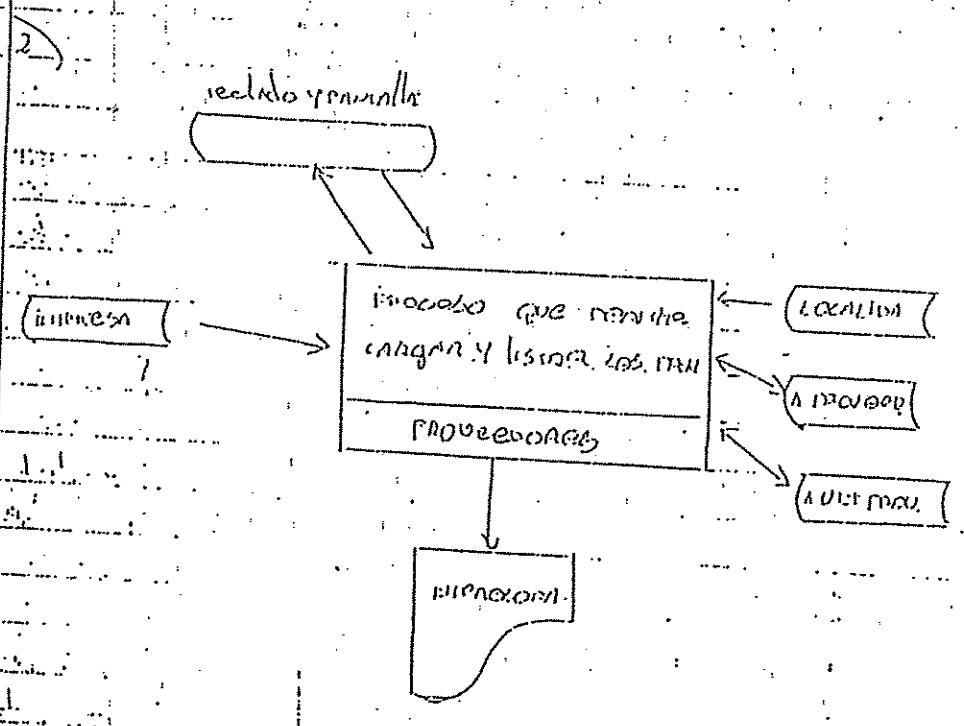 2
teclado y pantalla
EMPRESA
PROCESO QUE PERMITE
CARGAR Y LISTAR LOS
PROVEEDORES
LOCALIDA
A PROVEED
A ULT PROV.
IMPRESORA